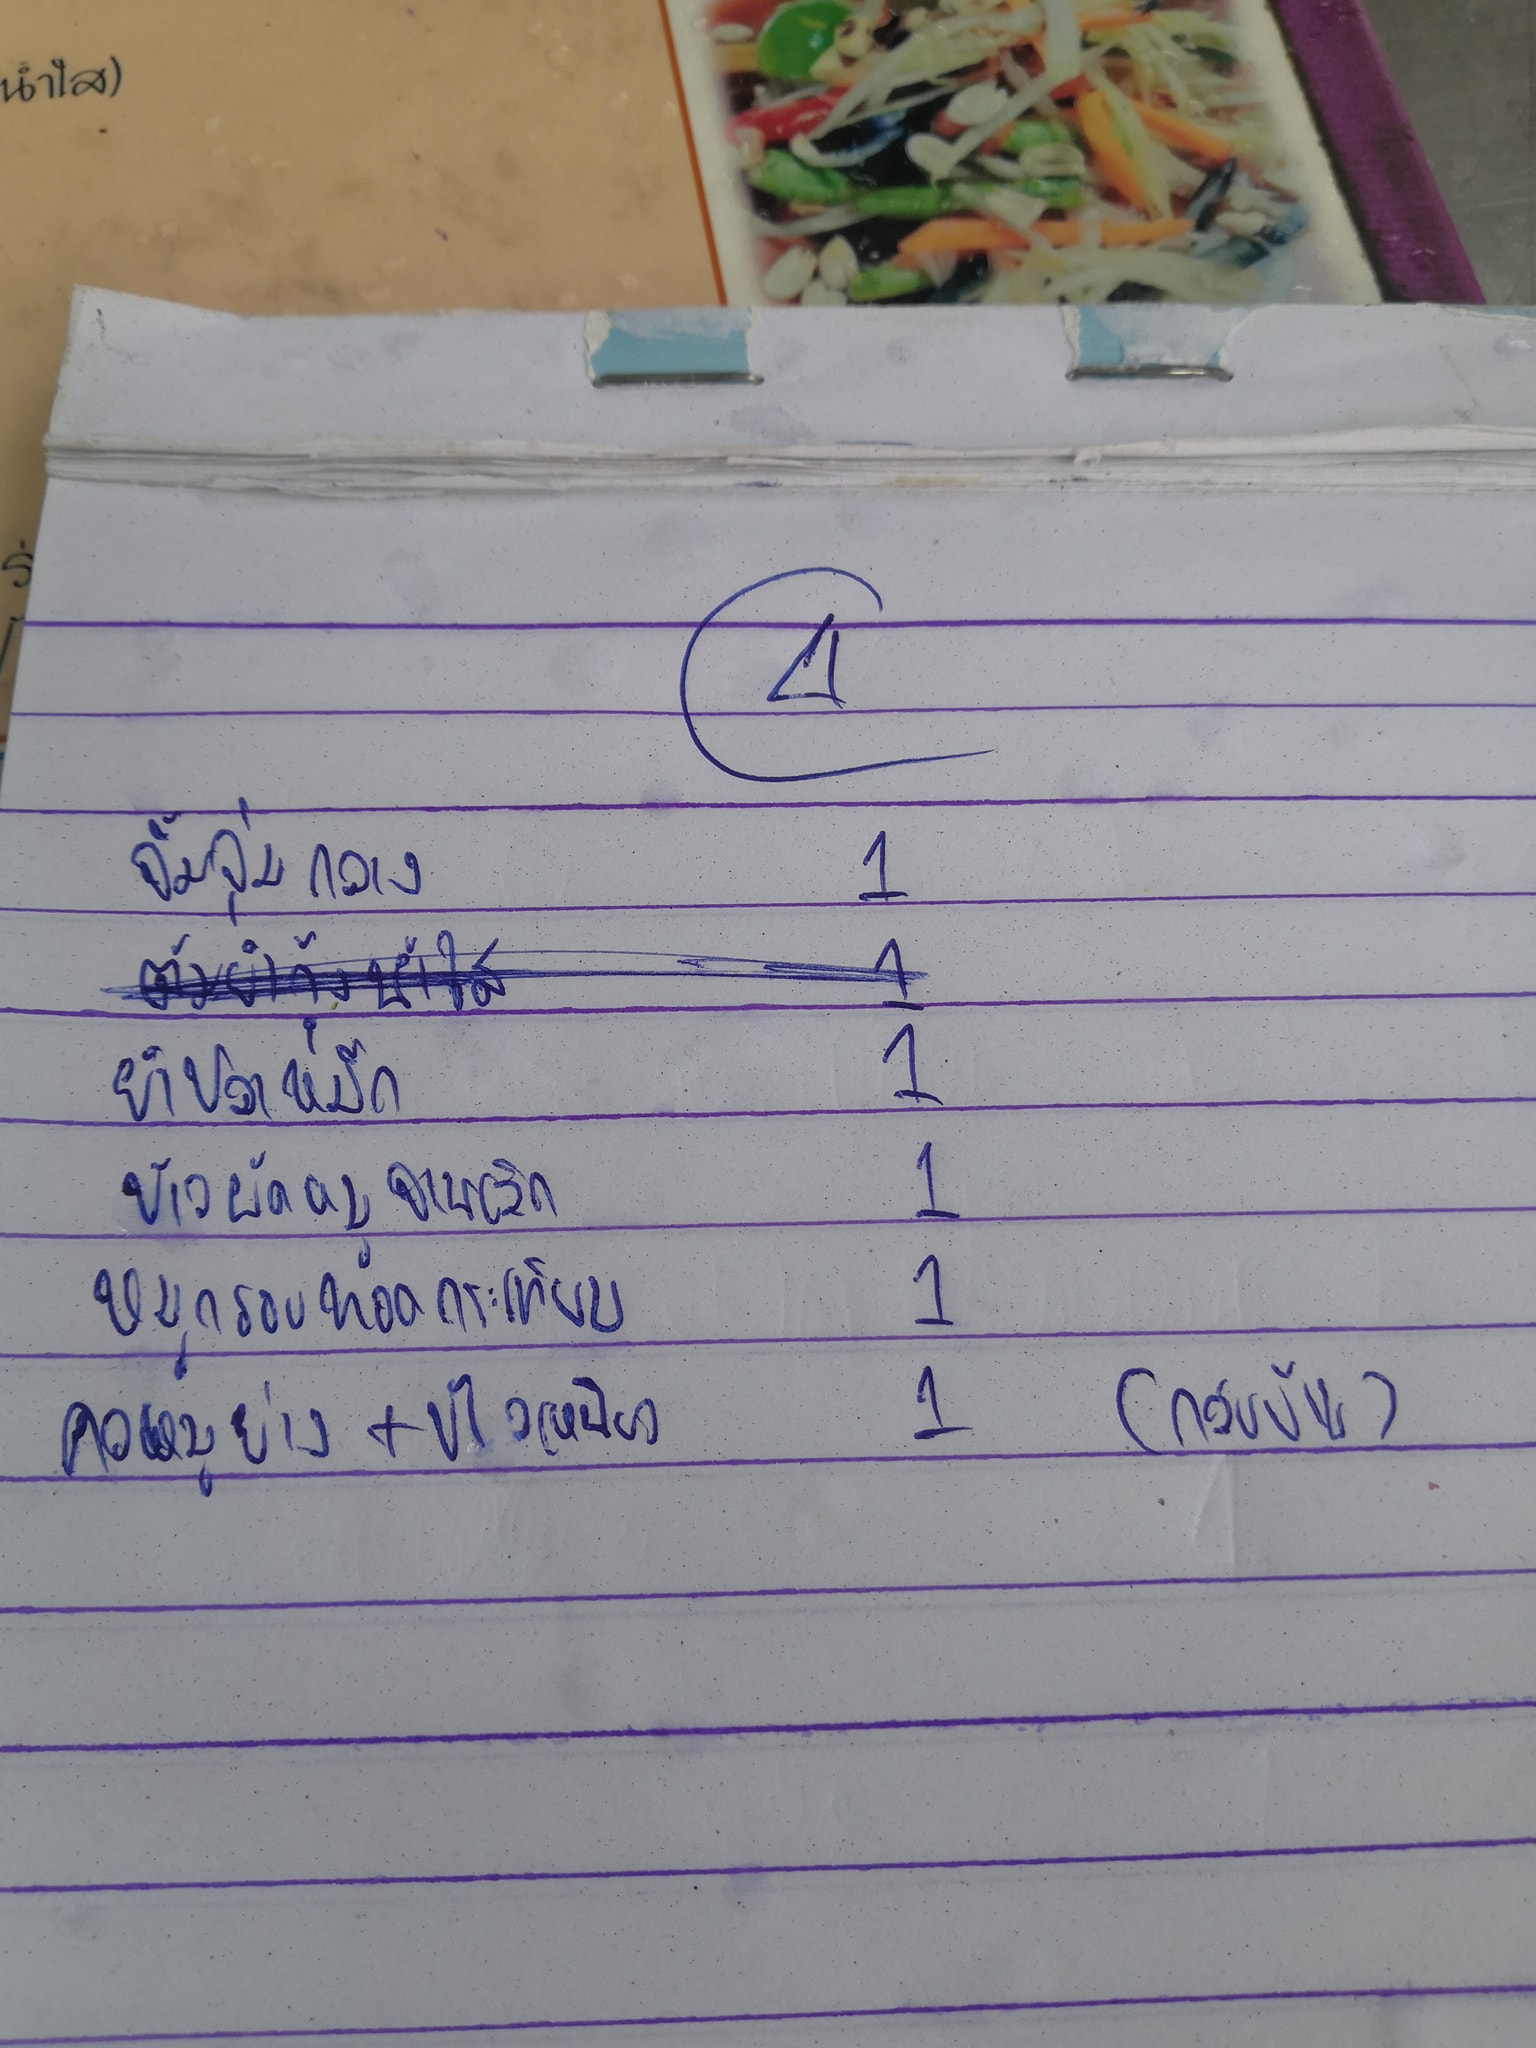 น้ำใส)
1
จิ้มจุ่ม กลาง 1
ต้มยำกุ้งน้ำใส 1
ยำปลาหมึก 1
ข้าวผัดหมู จานเล็ก 1
หมูกรอบทอดกระเทียม 1
คอหมูย่าง + ข้าวเหนียว 1 (กลับบ้าน)